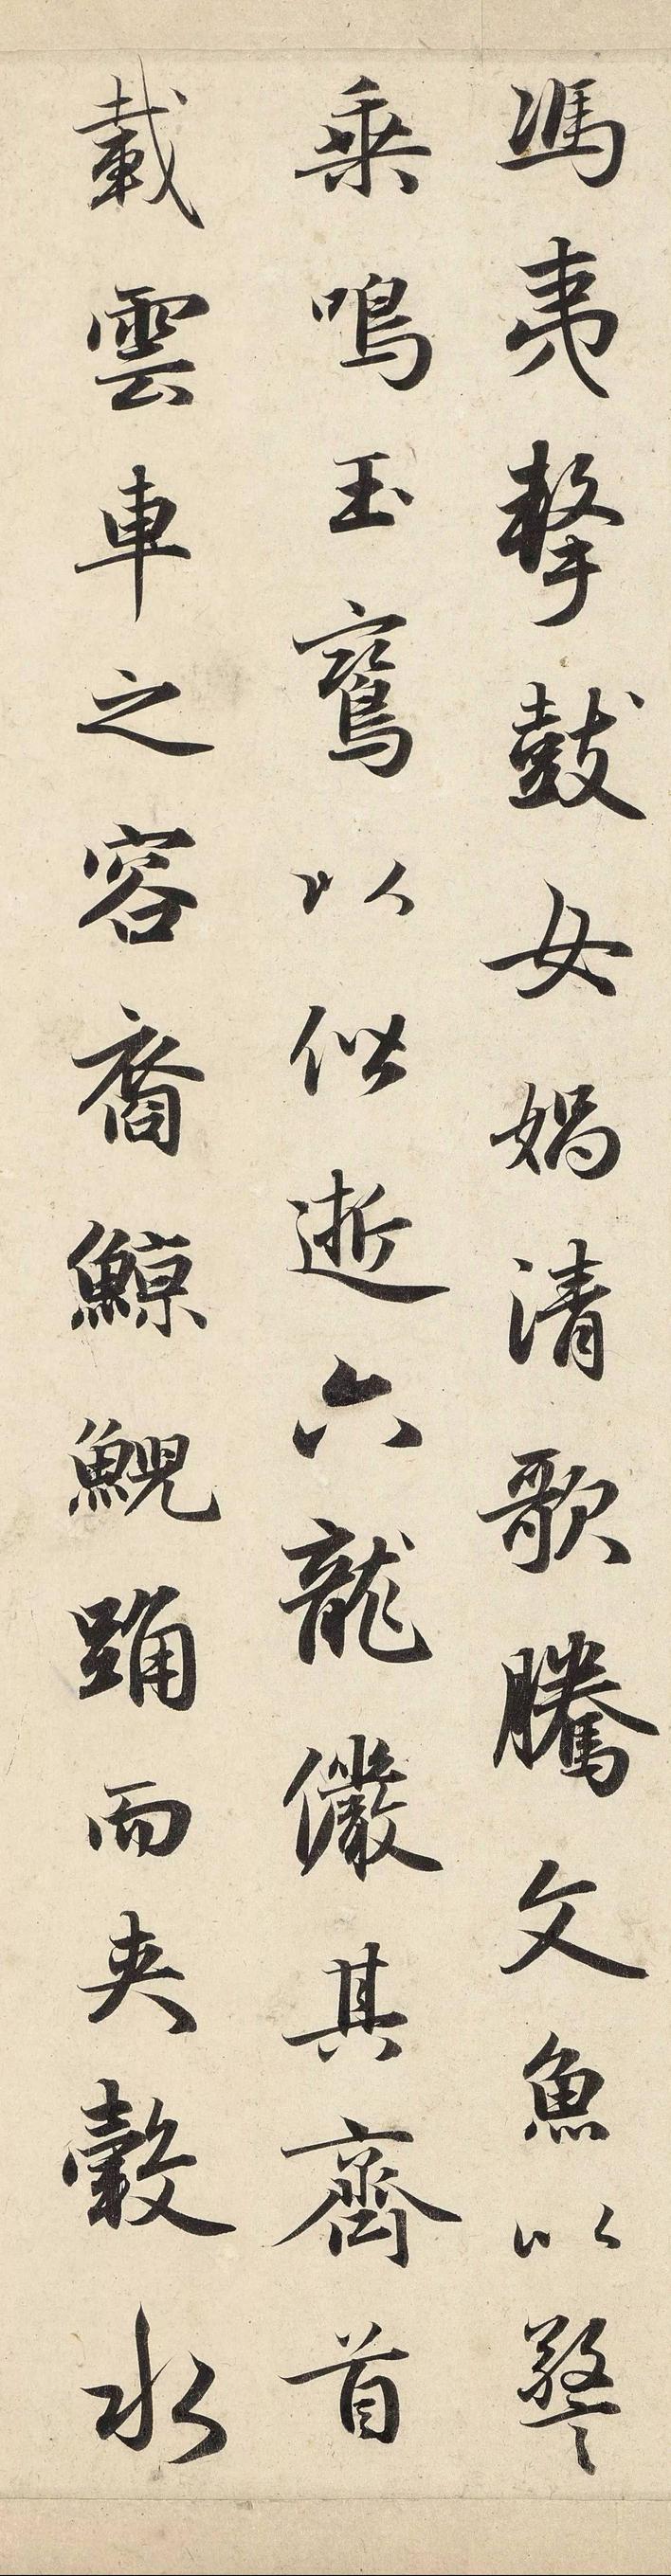 馮夷擊鼓女媧清歌騰文魚以警
乗鳴玉鸞以偕逝六龍儼其齊首
載雲車之容裔鯨鯢踊而夾轂水